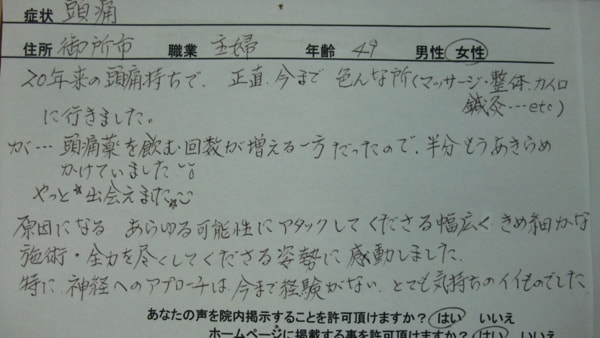 症状 頭痛
住所 御所市 職業 主婦 年齢 49 男性 女性
20年来の頭痛持ちで、正直、今まで色んな所(マッサージ・整体、カイロ
鍼灸…etc)
に行きました。
が… 頭痛薬を飲む回数が増える一方だったので、半分もうあきらめ
かけていました
やっと出会えました
原因になる あらゆる可能性にアタックしてくださる幅広く、きめ細かな
施術・全力を尽くしてくださる姿勢に感動しました。
特に、神経へのアプローチは今まで経験がない、とても気持ちのイイものでした。
あなたの声を院内掲示することを許可頂けますか? はい いいえ
ホームページに掲載する事を許可頂けますか? はい いいえ